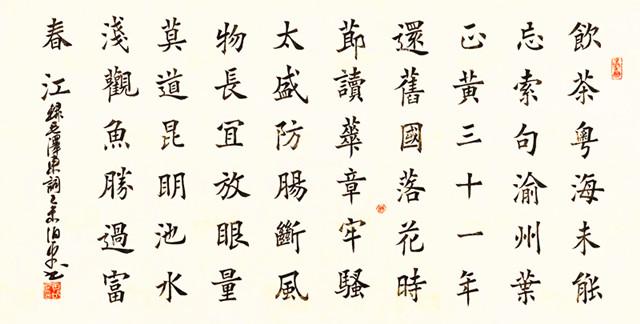 飲茶粵海未能
忘索句渝州葉
正黃三十一年
還舊國落花時
莭讀蕐章牢騷
太盛防腸斷風
物長冝放眼量
莫道昆眀池水
淺觀魚勝過富
春江
錄毛澤東詞